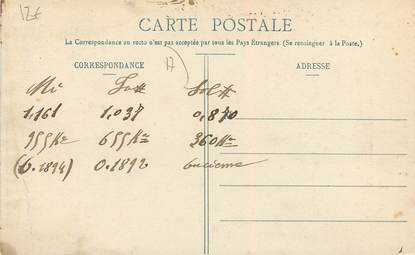 12€
CARTE POSTALE
La Correspondance au recto n'est pas acceptée par tous les Pays Étrangers (Se renseigner à la Poste.)
17
CORRESPONDANCE ADRESSE
Mi Fa# Sol#
1.161 1,037 0,870
955K 655K 360K
(6.1894) 0.1892